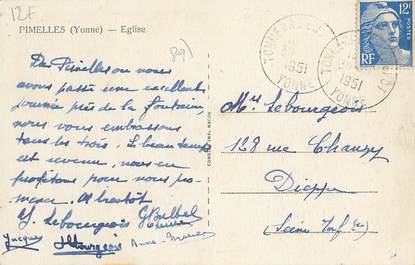 12F
PIMELLES (Yonne) — Eglise
891
De Pimelles ou nous
avons passé une excellente
journée près de la fontaine,
nous vous embrassons
tous les trois. Le beau temps
est revenu, nous en
profitons pour nous pro-
mener. A bientôt
Y. Lebourgeois G Bulbel
Jacques Lebourgeois Anne-Marie
1951
YONNE
1951
YONNE
12F
POSTES
RF
Mr Lebourgeois
128 rue Chanzy
Dieppe
(Seine Infre)